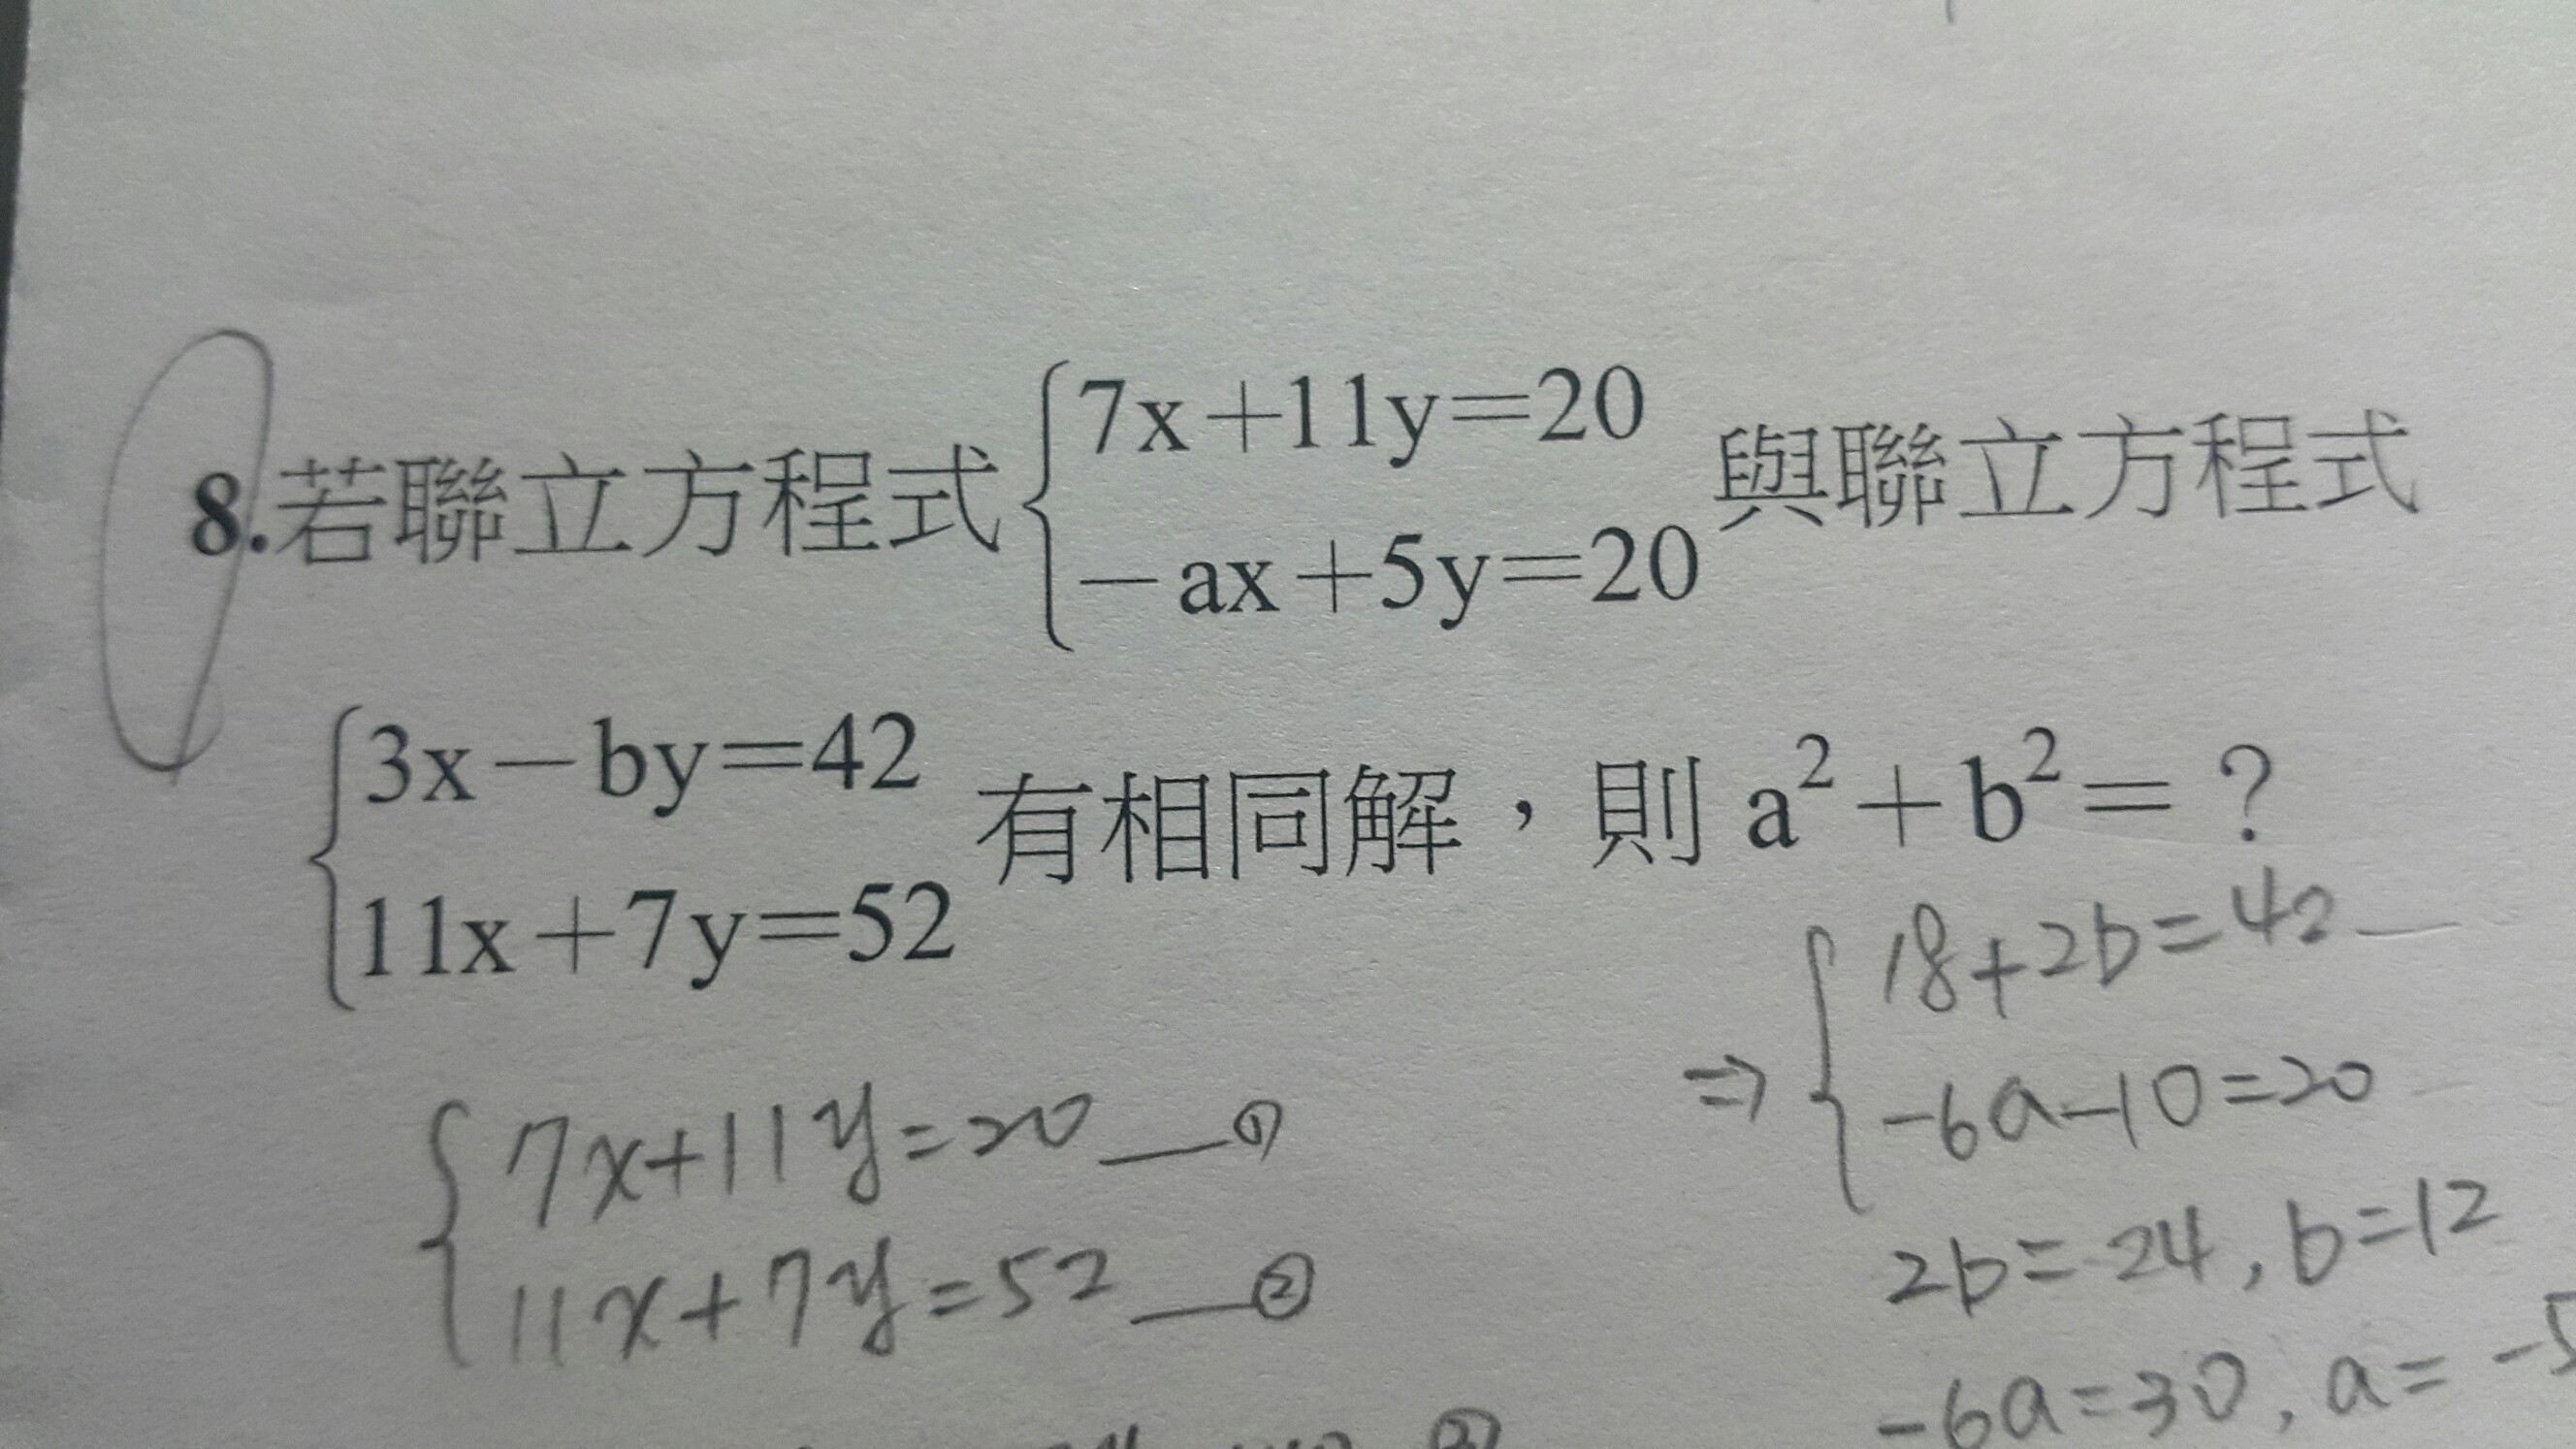 8.若聯立方程式{7x+11y=20
-ax+5y=20 與聯立方程式
{3x-by=42
11x+7y=52 有相同解,則 a²+b²=?
{7x+11y=20—①
11x+7y=52—②
⇒{18+2b=42—
-6a-10=20
2b=24, b=12
-6a=30, a=-5